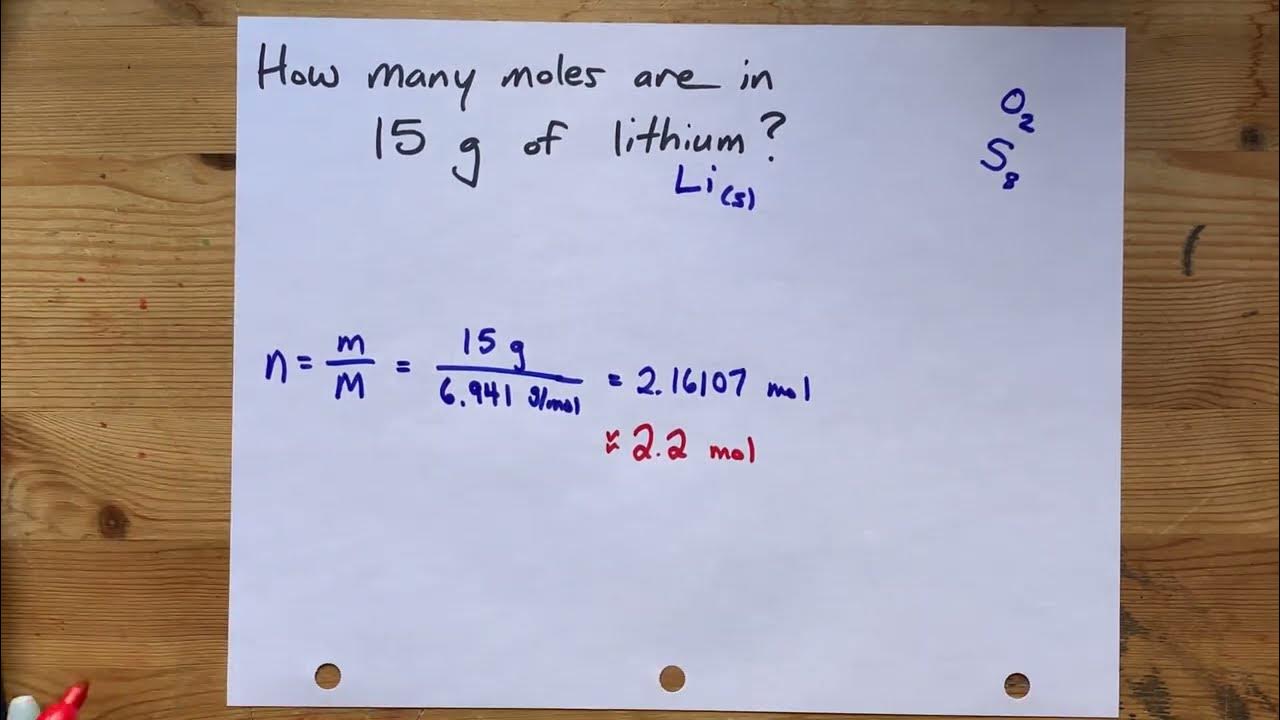 How many moles are in
15 g of lithium?
Li(s)
O2
S8
n = m/M = 15 g / 6.941 g/mol = 2.16107 mol
≈ 2.2 mol